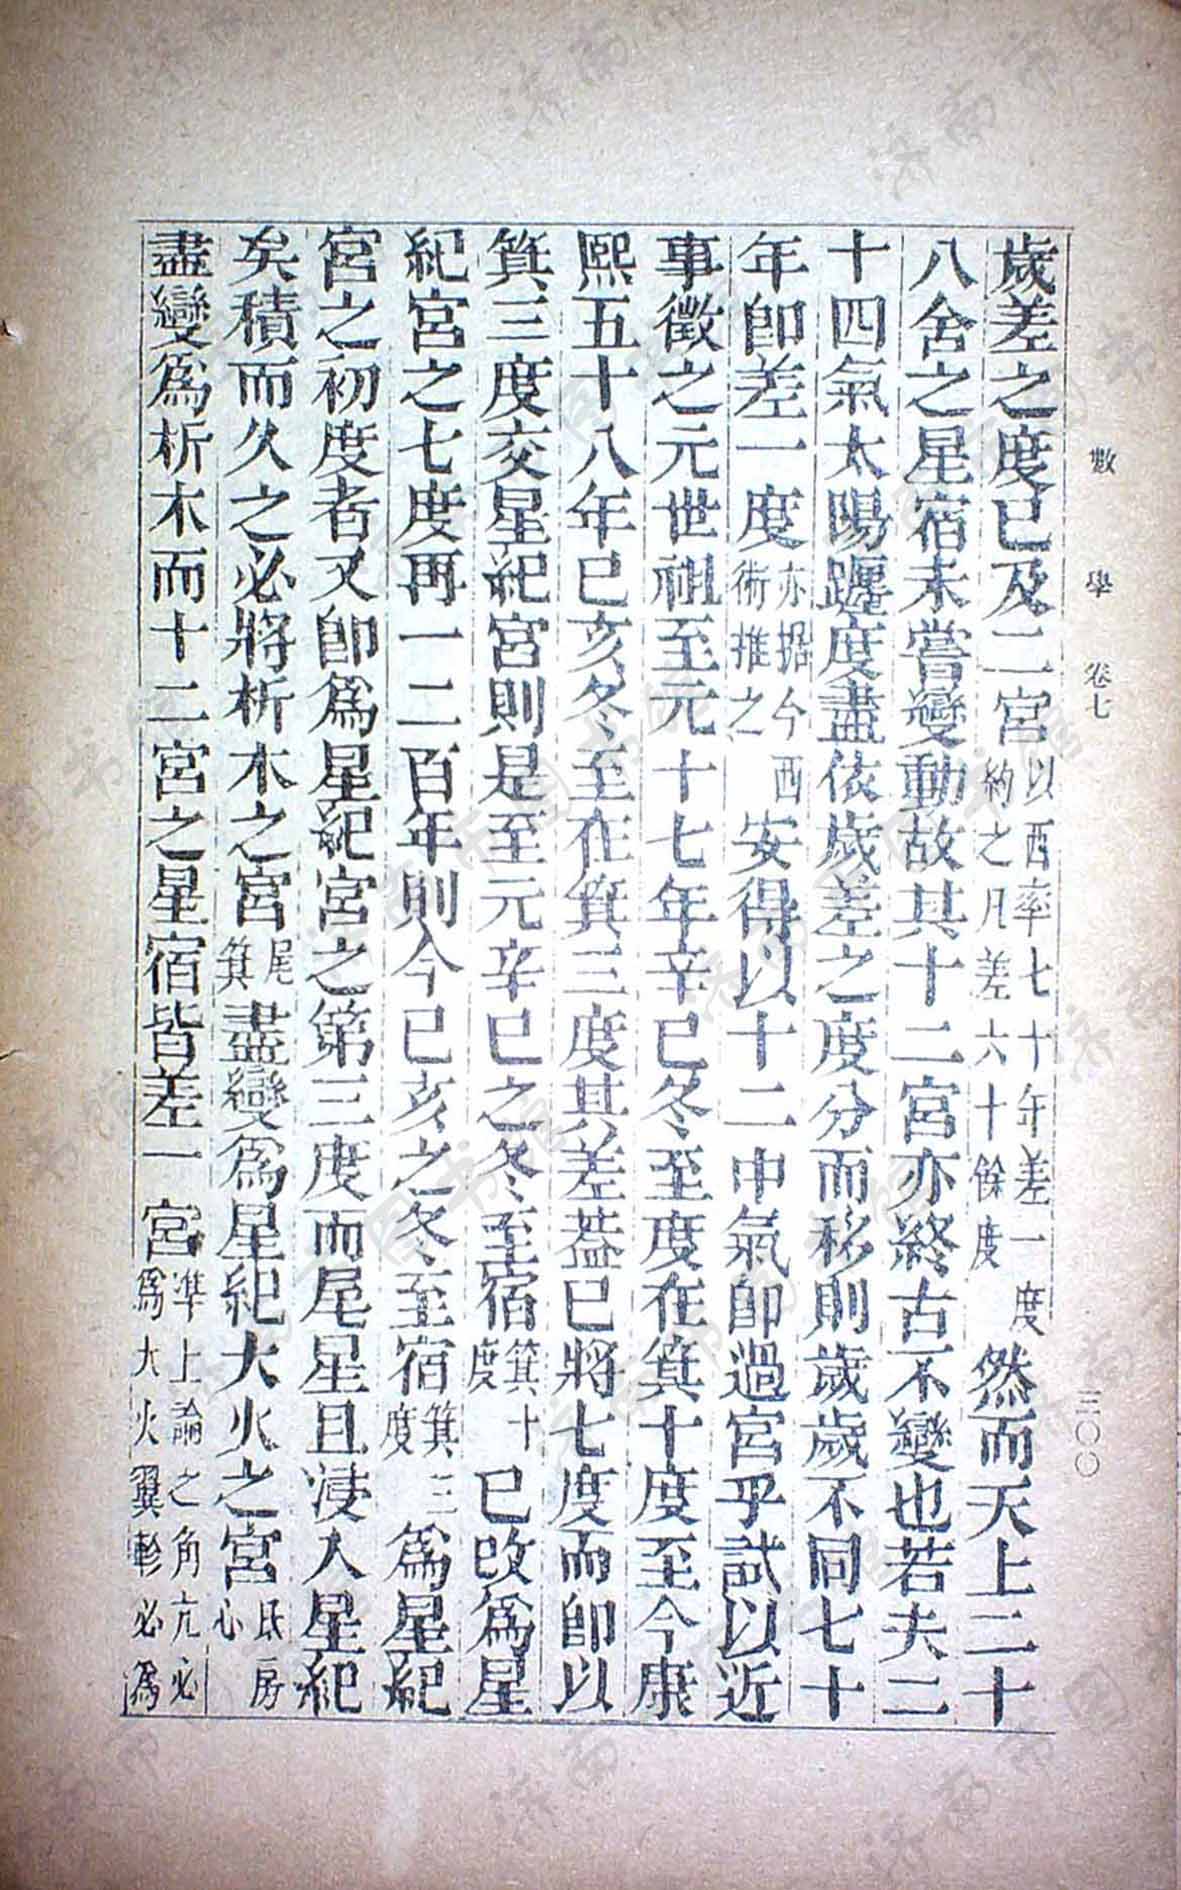 數學 卷七 三〇〇
歲差之度已及二宮以西率七十年差一度約之凡差六十餘度然而天上二十
八舍之星宿未嘗變動故其十二宮亦終古不變也若夫二
十四氣太陽躔度盡依歲差之度分而移則歲歲不同七十
年卽差一度亦據今西術推之安得以十二中氣卽過宮乎試以近
事徵之元世祖至元十七年辛巳冬至度在箕十度至今康
熙五十八年已亥冬至在箕三度其差葢已將七度而卽以
箕三度交星紀宮則是至元辛巳之冬至宿箕十度已改爲星
紀宮之七度再一二百年則今已亥之冬至宿箕三度爲星紀
宮之初度者又卽爲星紀宮之第三度而尾星且浸入星紀
矣積而久之必將析木之宮尾箕盡變爲星紀大火之宮氐房心
盡變爲析木而十二宮之星宿皆差一宮準上論之角亢必爲大火翼軫必爲